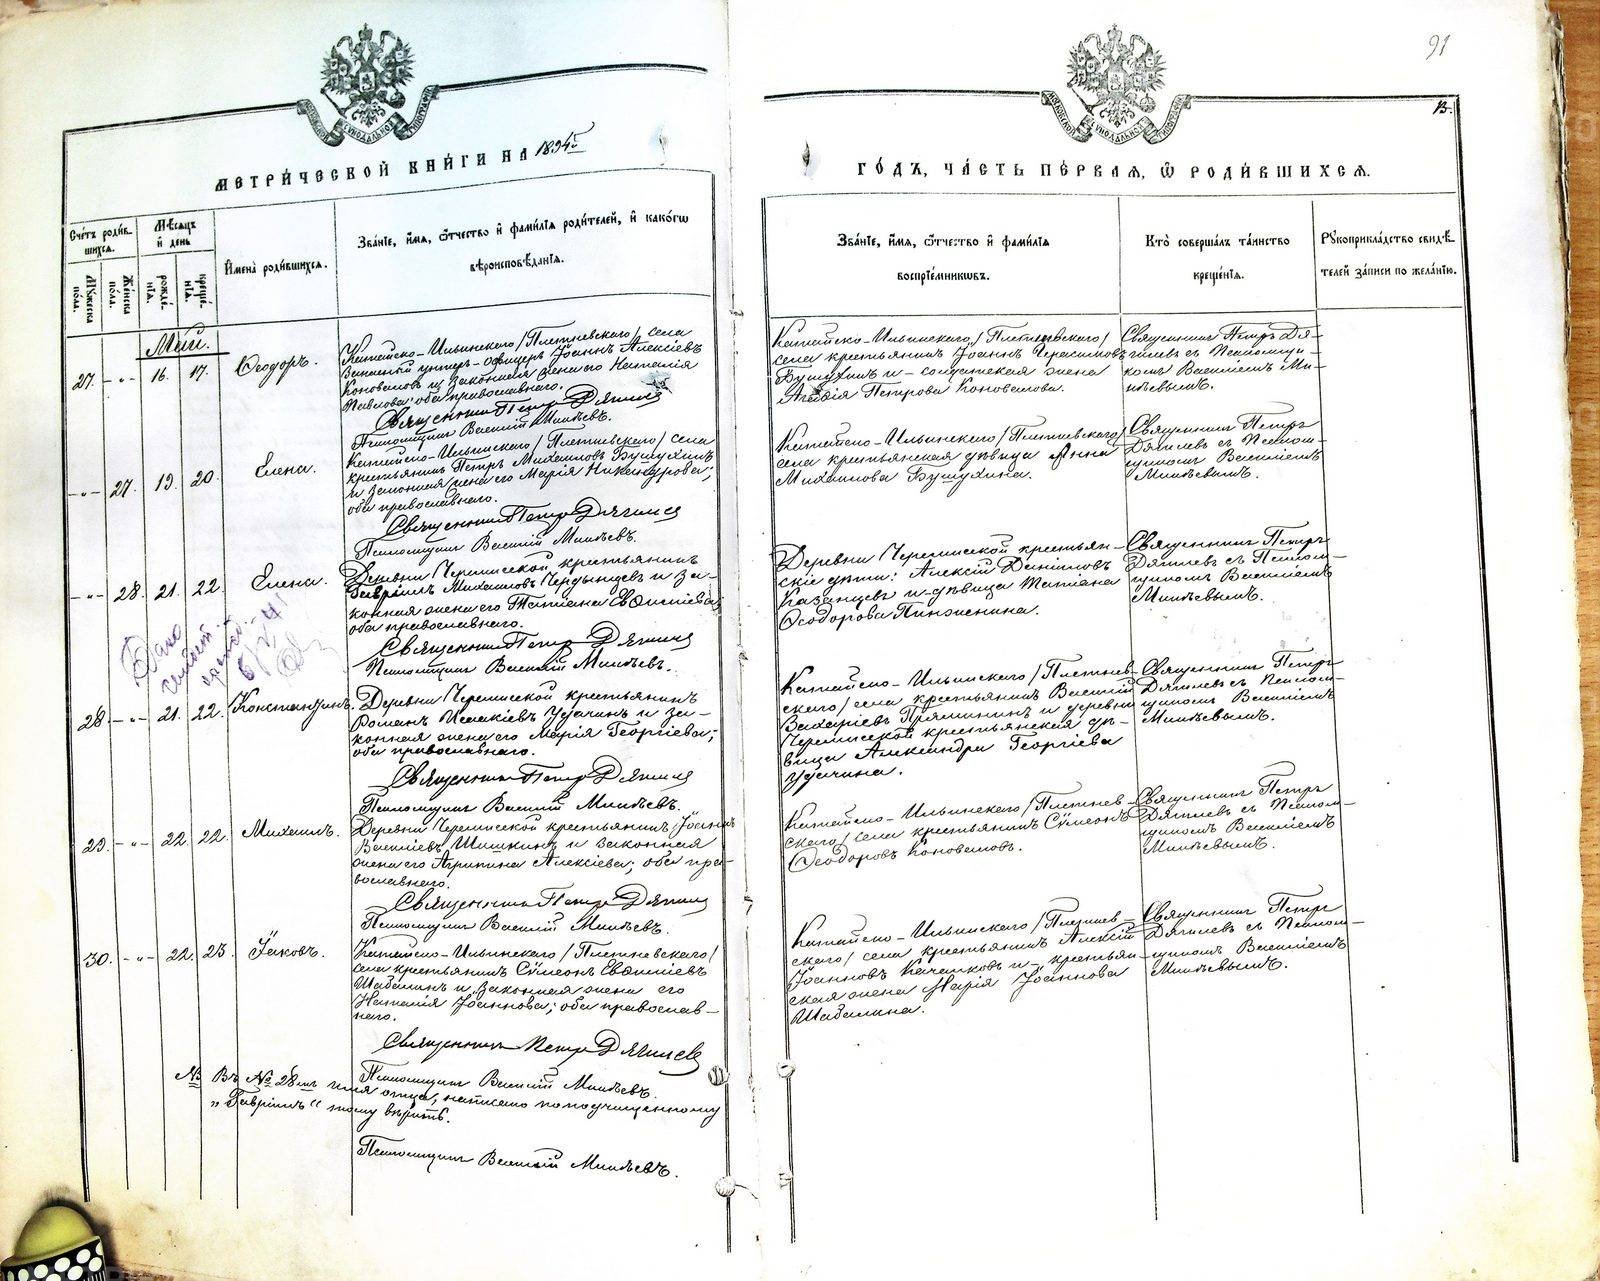 91
13.
МЕТРИ́ЧЕСКОЙ КНИ́ГИ НА 1894й
ГО́ДЪ, ЧА́СТЬ ПЕ́РВАЯ, Ѿ РОДИ́ВШИХСЯ.
Сче́тъ роди́в-
шихся.
Мѣ́сяцъ
и҆ день
Мꙋ́жеска
по́ла.
Же́нска
по́ла.
рожде́-
нїя.
креще́-
нїя.
И҆мена̀ роди́вшихся.
Зва́нїе, и҆́мя, ѻ҆́тчество и҆ фами́лїя роди́телей, и҆ како́гѡ
вѣроисповѣ́данїя.
Зва́нїе, и҆́мя, ѻ҆́тчество и҆ фами́лїя
воспрїе́мникѡвъ.
Кто̀ соверша́лъ та́инство
креще́нїя.
Рꙋкоприкла́дство свидѣ́-
телей за́писи по жела́нїю.
Май.
27. -"- 16. 17. Ѳеодоръ.
Катайско-Ильинскаго /Плетневскаго/ села
Запасный унтеръ-офицеръ Іоаннъ Алексіевъ
Коноваловъ и законная жена его Наталія
Павлова; оба православнаго.
Священникъ Петръ Дягилевъ
Псаломщикъ Василій Минѣевъ.
Катайско-Ильинскаго /Плетневскаго/
села крестьянинъ Іоаннъ Герасимовъ
Бушухинъ и солдатская жена
Агафія Петрова Коновалова.
Священникъ Петръ Дя-
гилевъ съ Псаломщи-
комъ Василіемъ Ми-
нѣевымъ.
-"- 27. 19. 20. Елена.
Катайско-Ильинскаго /Плетневскаго/ села
крестьянинъ Петръ Михаиловъ Бушухинъ
и законная жена его Марія Никандрова;
оба православнаго.
Священникъ Петръ Дягилевъ
Псаломщикъ Василій Минѣевъ.
Катайско-Ильинскаго /Плетневскаго/
села крестьянская дѣвица Анна
Михаилова Бушухина.
Священникъ Петръ
Дягилевъ съ Псалом-
щикомъ Василіемъ
Минѣевымъ.
-"- 28. 21. 22. Елена.
Деревни Черемисской крестьянинъ
Гавріилъ Михаиловъ Чердынцевъ и за-
конная жена его Татіана Евѳиміева;
оба православнаго.
Священникъ Петръ Дягилевъ
Псаломщикъ Василій Минѣевъ.
Деревни Черемисской крестьян-
скіе дѣти: Алексій Даніиловъ
Казанцевъ и дѣвица Татіана
Ѳеодорова Пинженина.
Священникъ Петръ
Дягилевъ съ Псалом-
щикомъ Василіемъ
Минѣевымъ.
Дано
28. -"- 21. 22. Константинъ.
Деревни Черемисской крестьянинъ
Романъ Исаакіевъ Удачинъ и за-
конная жена его Марія Георгіева;
оба православнаго.
Священникъ Петръ Дягилевъ
Псаломщикъ Василій Минѣевъ.
Катайско-Ильинскаго /Плетнев-
скаго/ села крестьянинъ Василій
Захаріевъ Пряминъ и деревни
Черемисской крестьянская дѣ-
вица Александра Георгіева
Удачина.
Священникъ Петръ
Дягилевъ съ Псалом-
щикомъ Василіемъ
Минѣевымъ.
29. -"- 22. 22. Михаилъ.
Деревни Черемисской крестьянинъ Іоаннъ
Василіевъ Шишкинъ и законная
жена его Агрипина Алексіева; оба пра-
вославнаго.
Священникъ Петръ Дягилевъ
Псаломщикъ Василій Минѣевъ.
Катайско-Ильинскаго /Плетнев-
скаго/ села крестьянинъ Сѵмеонъ
Ѳеодоровъ Коноваловъ.
Священникъ Петръ
Дягилевъ съ Псалом-
щикомъ Василіемъ
Минѣевымъ.
30. -"- 22. 23. Іаковъ.
Катайско-Ильинскаго /Плетневскаго/
села крестьянинъ Сѵмеонъ Евѳиміевъ
Шабалинъ и законная жена его
Наталія Іоаннова; оба православ-
наго.
Священникъ Петръ Дягилевъ
Псаломщикъ Василій Минѣевъ.
Катайско-Ильинскаго /Плетнев-
скаго/ села крестьянинъ Алексій
Іоанновъ Качалковъ и крестьян-
ская жена Марія Іоаннова
Шабалина.
Священникъ Петръ
Дягилевъ съ Псалом-
щикомъ Василіемъ
Минѣевымъ.
NB Въ № 28мъ имя отца, написано по подчищенному
„Гавріилъ“ тому вѣрить.
Псаломщикъ Василій Минѣевъ.